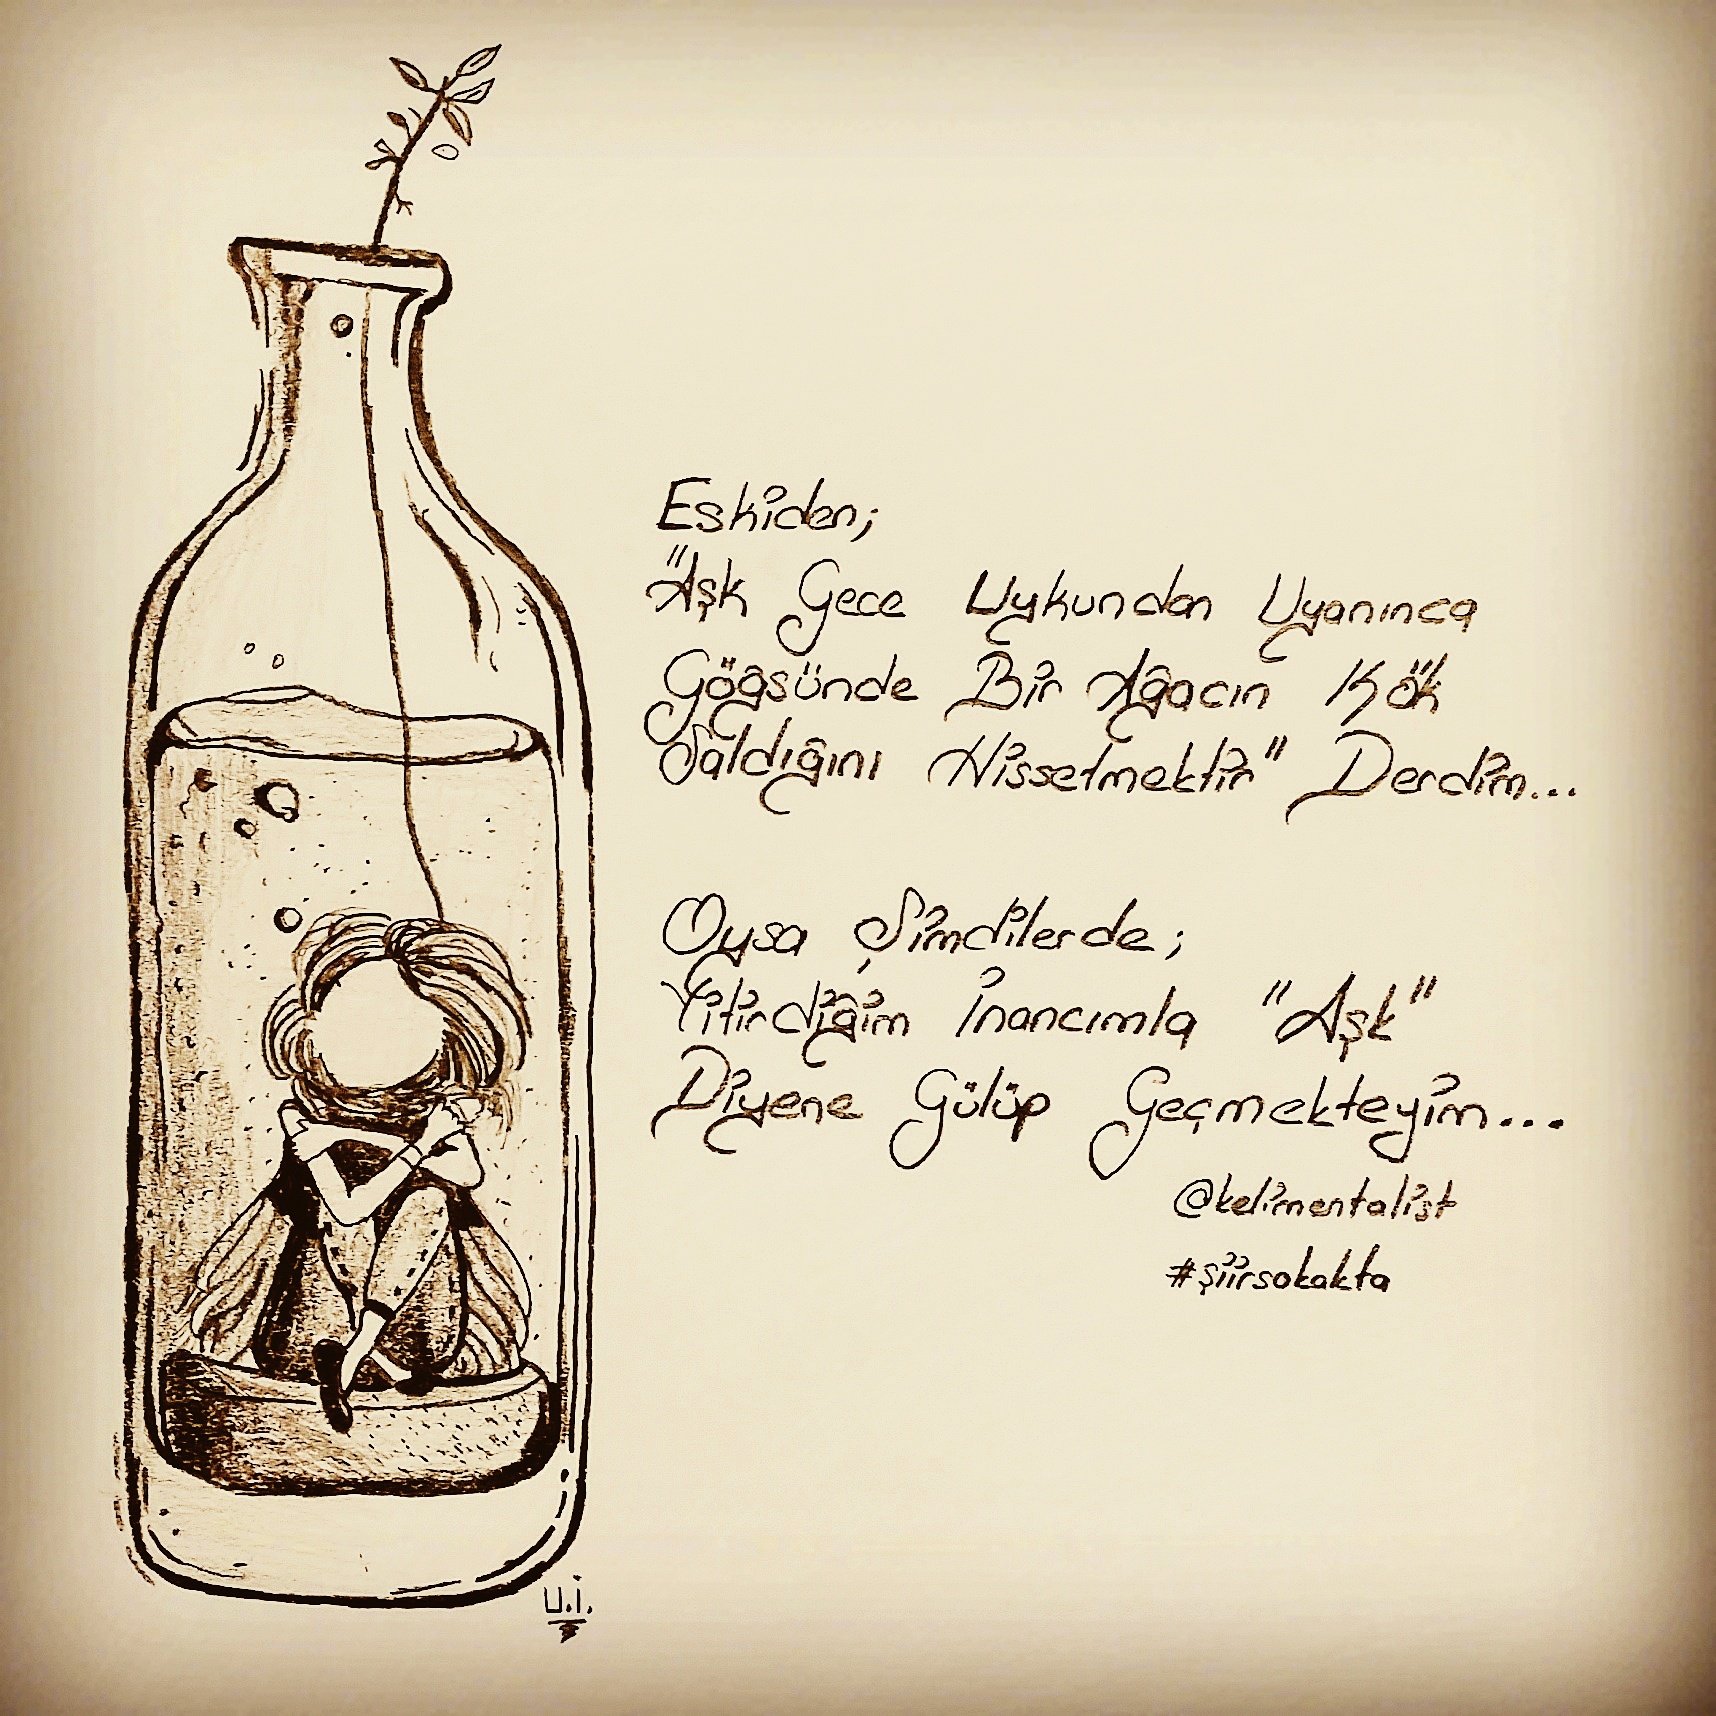 Eskiden;
"Aşk Gece Uykundan Uyanınca
Göğsünde Bir Ağacın Kök
Saldığını Hissetmektir" Derdim...
Oysa Şimdilerde;
Yitirdiğim İnancımla "Aşk"
Diyene Gülüp Geçmekteyim...
@kelimentalist
#şiirsokakta
U.İ.